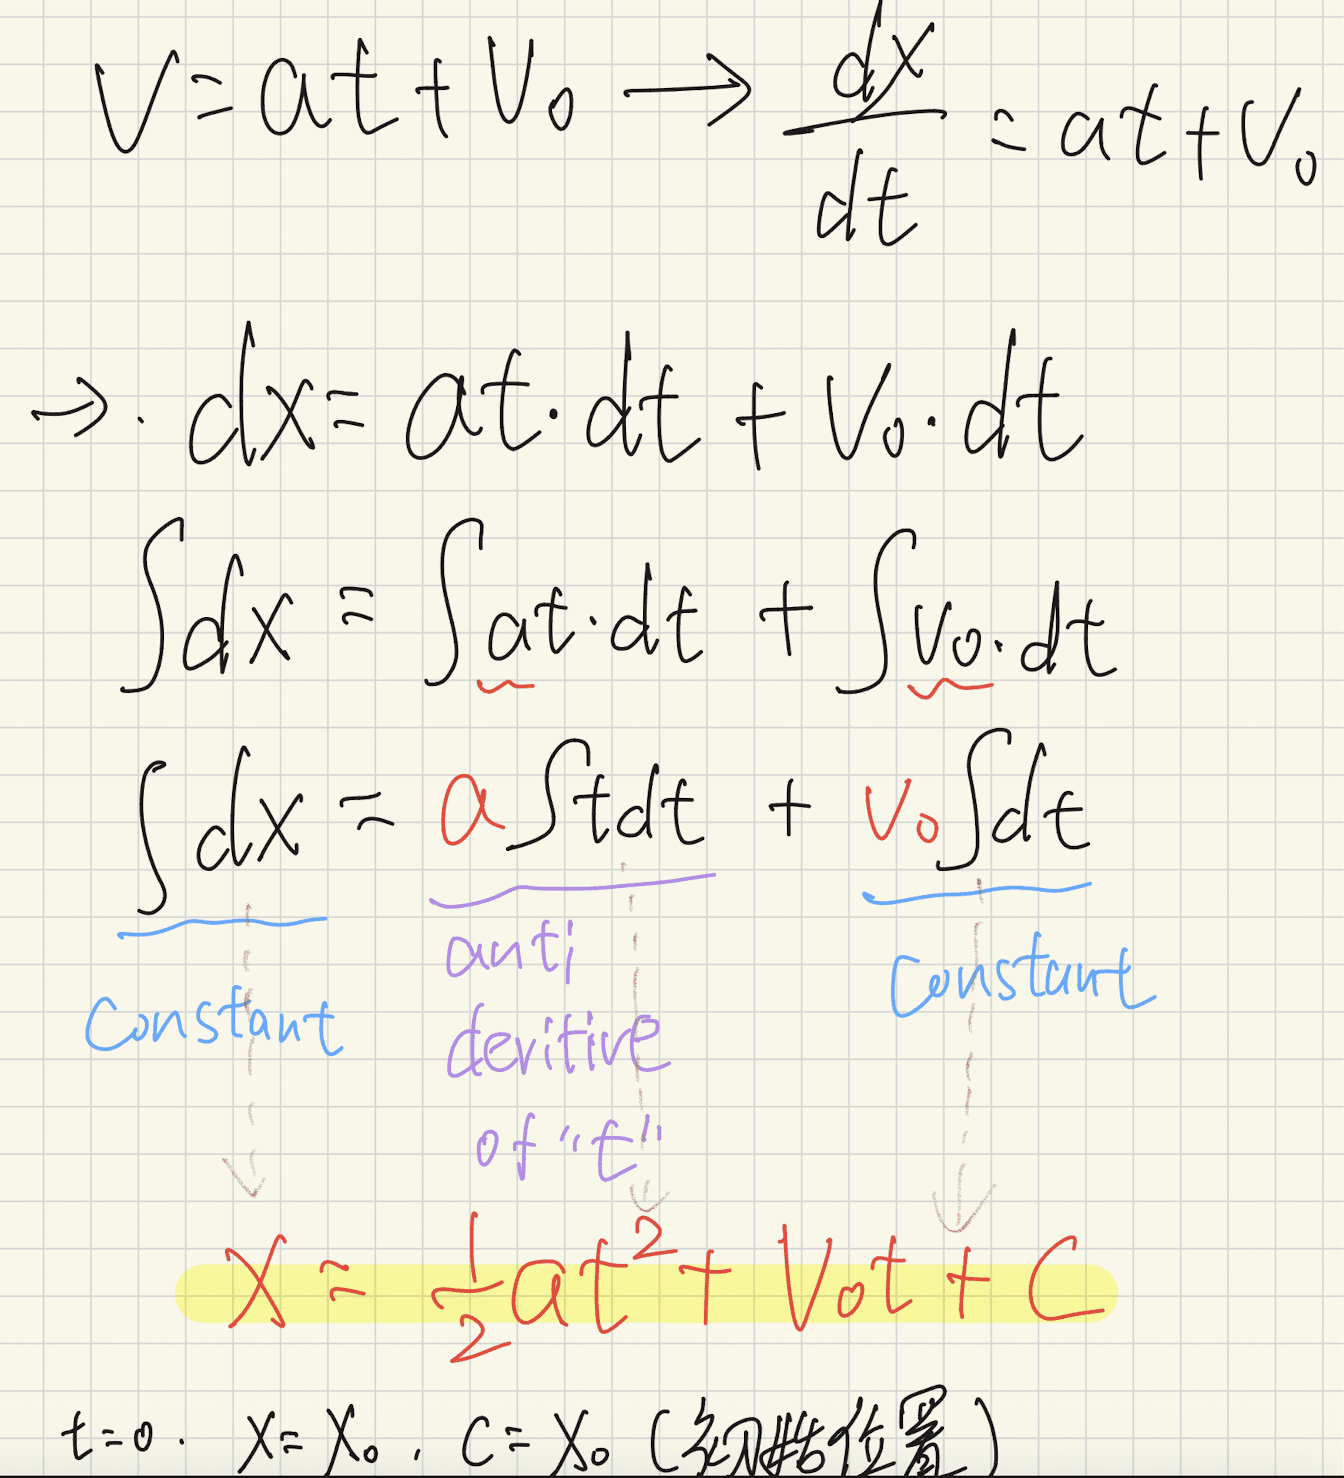 V = at + V₀ → dx/dt = at + V₀
→. dx = at · dt + V₀ · dt
∫dx = ∫at · dt + ∫V₀ · dt
∫dx = a∫tdt + V₀∫dt
constant anti constant
devitive
of "t"
X = 1/2 at² + V₀t + C
t=0. X=X₀. C=X₀ (位置)